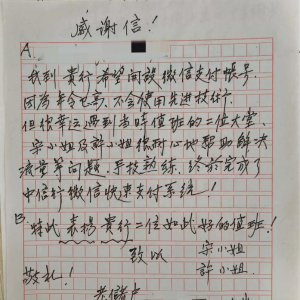 感谢信!
A.
我到 貴行 希望開放 微信支付帳号.
因为年令已高, 不会使用先进技术.
但很幸运遇到当時值班的二位大堂.
宋小姐及許小姐很耐心地帮助解决
流量等问题. 手技熟练. 终於完成了
中信行微信快速支付系统!
B. 特此 表揚 貴行二位如此好的值班!
致以 宋小姐
敬礼! 許小姐.
老儲户